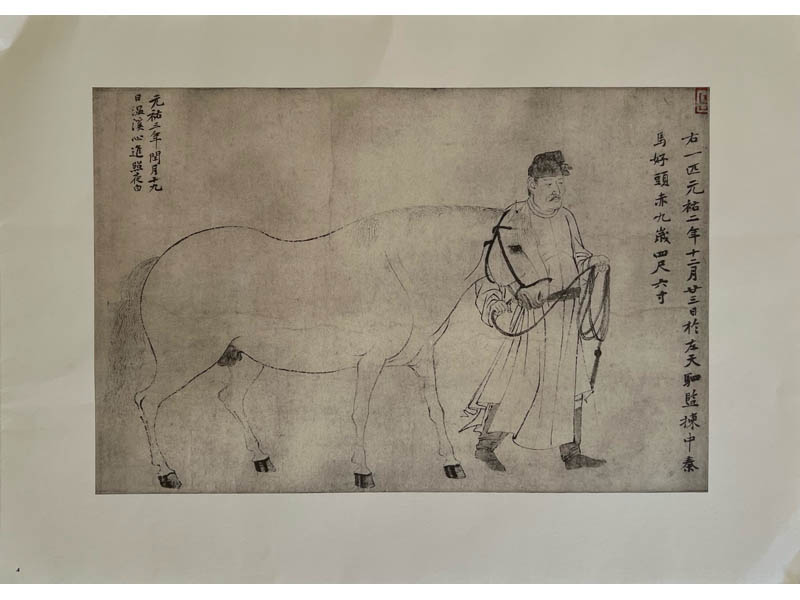 右一匹元祐二年十二月廿三日於左天駟監揀中秦
馬好頭赤九歲四尺六寸
元祐三年閏月十九
日温溪心進照夜白